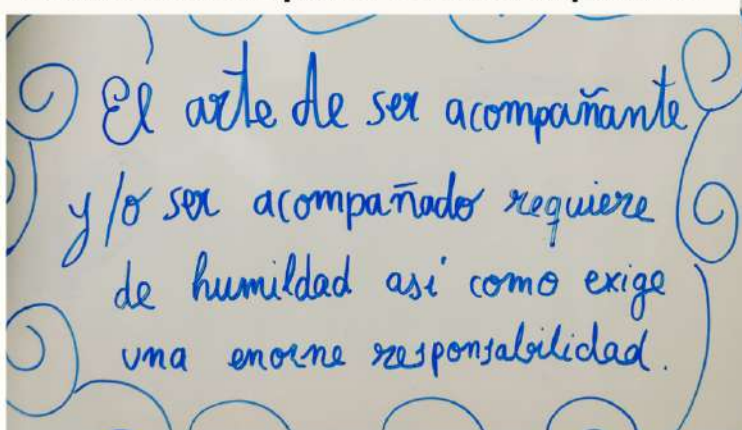 El arte de ser acompañante
y/o ser acompañado requiere
de humildad así como exige
una enorme responsabilidad.